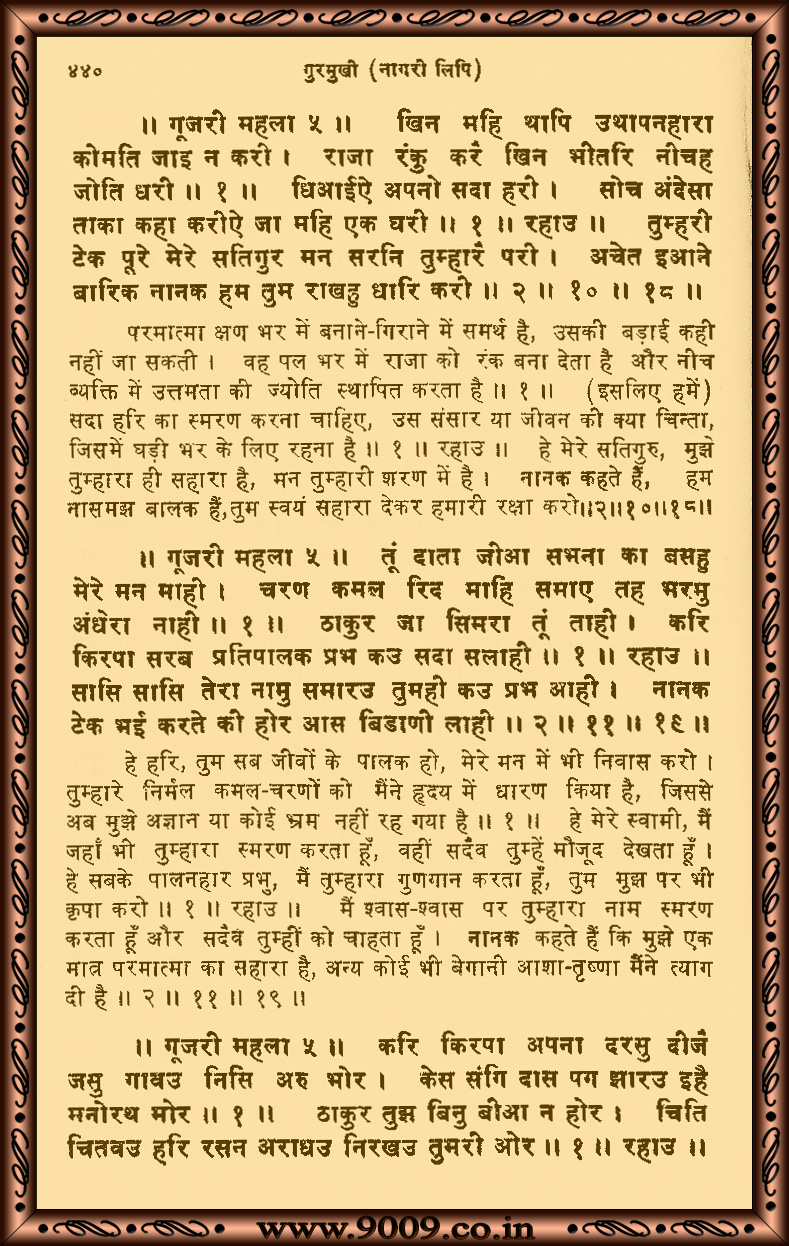 ४४०
गुरमुखी (नागरी लिपि)
॥ गूजरी महला ५ ॥ खिन महि थापि उथापनहारा
कीमति जाइ न करी । राजा रंकु करै खिन भीतरि नीचह
जोति धरी ॥ १ ॥ धिआईऐ अपनो सदा हरी । सोच अंदेसा
ताका कहा करीऐ जा महि एक घरी ॥ १ ॥ रहाउ ॥ तुम्हरी
टेक पूरे मेरे सतिगुर मन सरनि तुम्हारै परी । अचेत इआने
बारिक नानक हम तुम राखहु धारि करी ॥ २ ॥ १० ॥ १८ ॥
परमात्मा क्षण भर में बनाने-गिराने में समर्थ है, उसकी बड़ाई कही
नहीं जा सकती । वह पल भर में राजा को रंक बना देता है और नीच
व्यक्ति में उत्तमता की ज्योति स्थापित करता है ॥ १ ॥ (इसलिए हमें)
सदा हरि का स्मरण करना चाहिए, उस संसार या जीवन की क्या चिन्ता,
जिसमें घड़ी भर के लिए रहना है ॥ १ ॥ रहाउ ॥ हे मेरे सतिगुरु, मुझे
तुम्हारा ही सहारा है, मन तुम्हारी शरण में है । नानक कहते हैं, हम
नासमझ बालक हैं,तुम स्वयं सहारा देकर हमारी रक्षा करो॥२॥१०॥१८॥
॥ गूजरी महला ५ ॥ तूं दाता जीआ सभना का बसहु
मेरे मन माही । चरण कमल रिद माहि समाए तह भरमु
अंधेरा नाही ॥ १ ॥ ठाकुर जा सिमरा तूं ताही । करि
किरपा सरब प्रतिपालक प्रभ कउ सदा सलाही ॥ १ ॥ रहाउ ॥
सासि सासि तेरा नामु समारउ तुमही कउ प्रभ आही । नानक
टेक भई करते की होर आस बिडाणी लाही ॥ २ ॥ ११ ॥ १९ ॥
हे हरि, तुम सब जीवों के पालक हो, मेरे मन में भी निवास करो ।
तुम्हारे निर्मल कमल-चरणों को मैंने हृदय में धारण किया है, जिससे
अब मुझे अज्ञान या कोई भ्रम नहीं रह गया है ॥ १ ॥ हे मेरे स्वामी, मैं
जहाँ भी तुम्हारा स्मरण करता हूँ, वहीं सदैव तुम्हें मौजूद देखता हूँ ।
हे सबके पालनहार प्रभु, मैं तुम्हारा गुणगान करता हूँ, तुम मुझ पर भी
कृपा करो ॥ १ ॥ रहाउ ॥ मैं श्वास-श्वास पर तुम्हारा नाम स्मरण
करता हूँ और सदैव तुम्हीं को चाहता हूँ । नानक कहते हैं कि मुझे एक
मात्र परमात्मा का सहारा है, अन्य कोई भी बेगानी आशा-तृष्णा मैंने त्याग
दी है ॥ २ ॥ ११ ॥ १९ ॥
॥ गूजरी महला ५ ॥ करि किरपा अपना दरसु दीजै
जसु गावउ निसि अरु भोर । केस संगि दास पग झारउ इहै
मनोरथ मोर ॥ १ ॥ ठाकुर तुझ बिनु बीआ न होर । चिति
चितवउ हरि रसन अराधउ निरखउ तुमरी ओर ॥ १ ॥ रहाउ ॥
www.9009.co.in